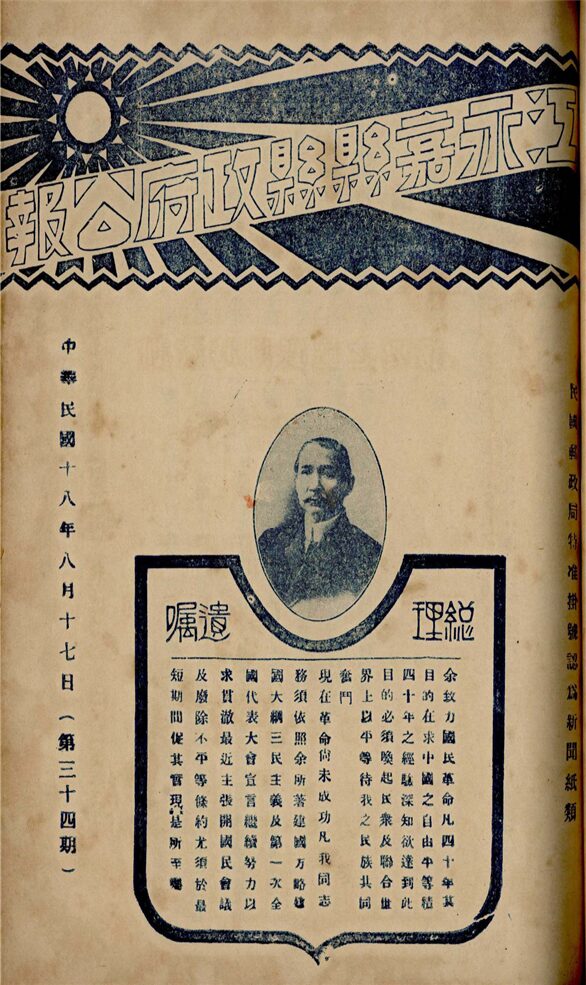 江永嘉縣縣政府公報
民國郵政局特准掛號認為新聞紙類
總理遺囑
余致力國民革命凡四十年其
目的在求中國之自由平等積
四十年之經驗深知欲達到此
目的必須喚起民衆及聯合世
界上以平等待我之民族共同
奮鬥
現在革命尙未成功凡我同志
務須依照余所著建國方略建
國大綱三民主義及第一次全
國代表大會宣言繼續努力以
求貫澈最近主張開國民會議
及廢除不平等條約尤須於最
短期間促其實現是所至囑
中華民國十八年八月十七日(第三十四期)